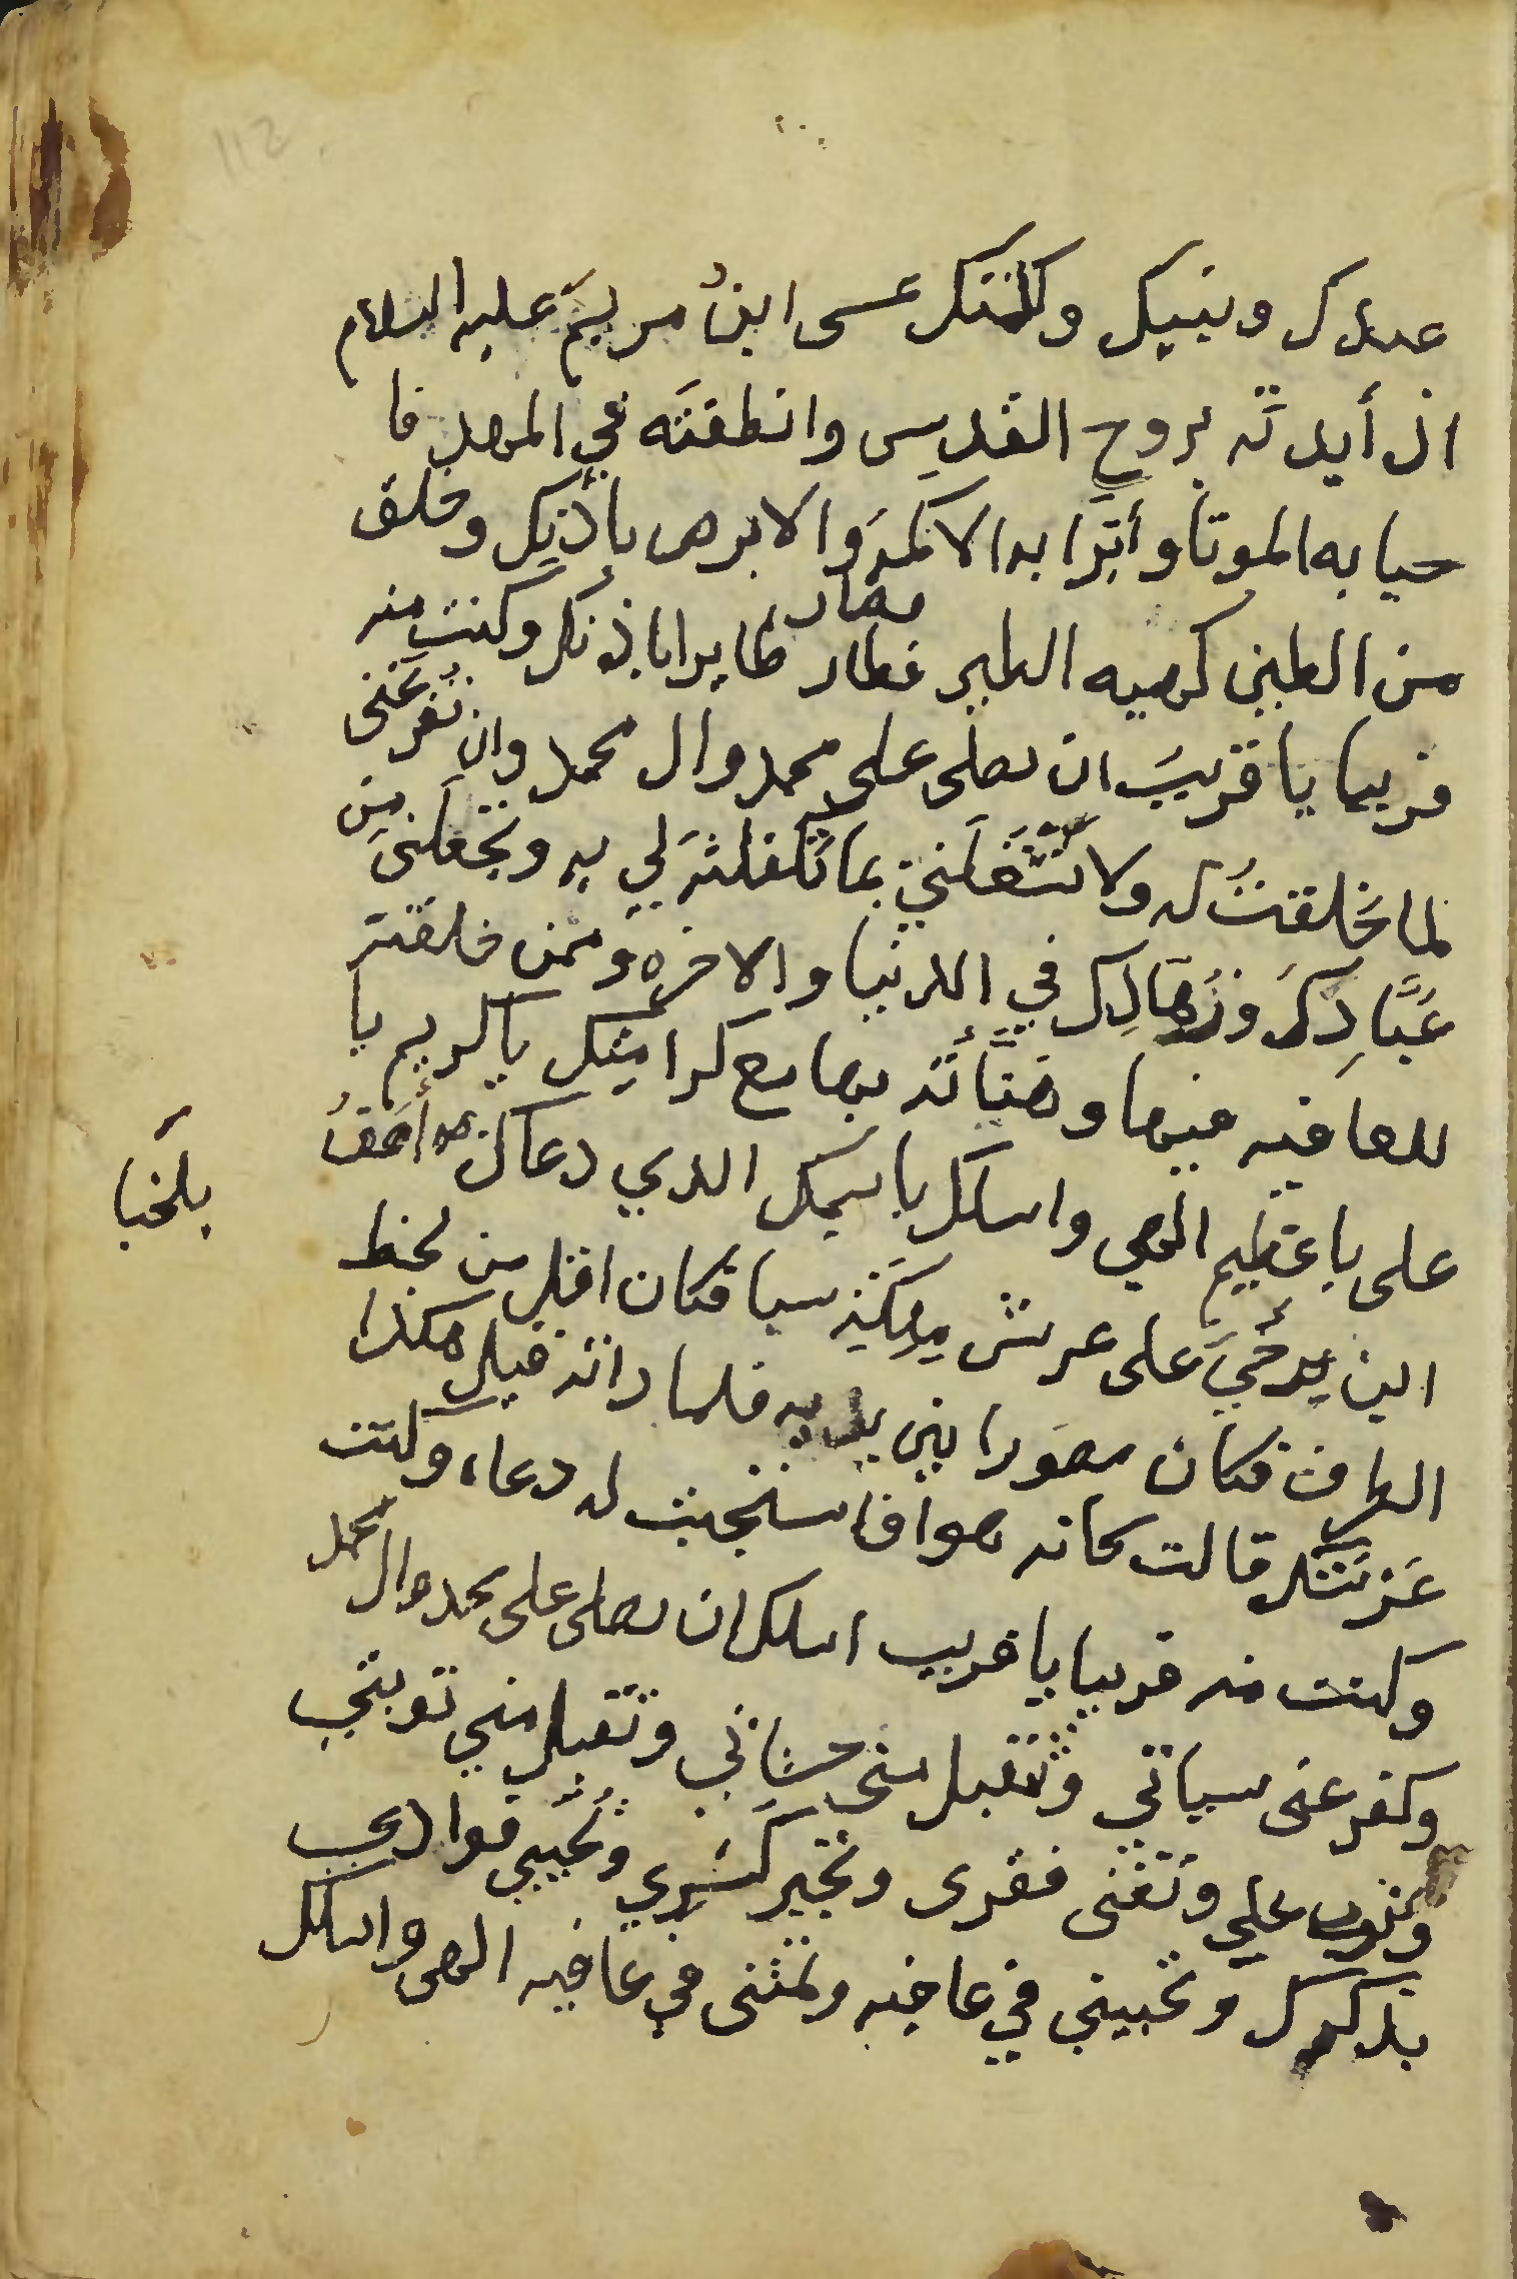 عبدك ونبيك وكلمتك عسى ابنُ مريمَ عليه السلام
اذ أيدتَه بروحِ القدسِ وانطقتَه في المهد فا
حيا به الموتا وأبرَا به الاكمهَ والابرص بأذنِكَ وخلق
من الطين كهيه الطير فطار فصار طايرا باذنك وكنت منه
قريبا يا قريبَ ان تصلى على محمد وال محمد وان تُفرغَنى
لما خَلقتنُى له ولا تَشْغَلَنيَ بما تَكفلتَه لي به وتجعلَنى مِن
عُبَّادِكَ وزُهَّادِكَ في الدنيا والاخره وممن خلقته
للعافيه فيها وهَنَّأتَه بها مع كرامتِك يا كريم يا
على يا عظيم الهي واسلك باسمِكَ الدي دعاك به أصَفُ
ابن برخيَّ على عرش مِلِكَةِ سبا فكان اقل من لحظ
الطرف فكان مصَورا بين يديه فلما راته قيل هكذا
عَرشُك قالت كانه هوا فاستجبت له دعاءه وكنت
وكنت منه قريبا يا قريب اسلك ان تصلى على محمد وال محمد
وكفر عنى سياتي وتتقبل منى حسناتي وتَقبل مني توبتي
وتتوب علي وتَغنى فقرى وتجبر كَسْري وتُحْيِي فوادي
بذكرك وتحييني في عافيه وتمتنى في عافيه الهى واسلك
بلخيا
112